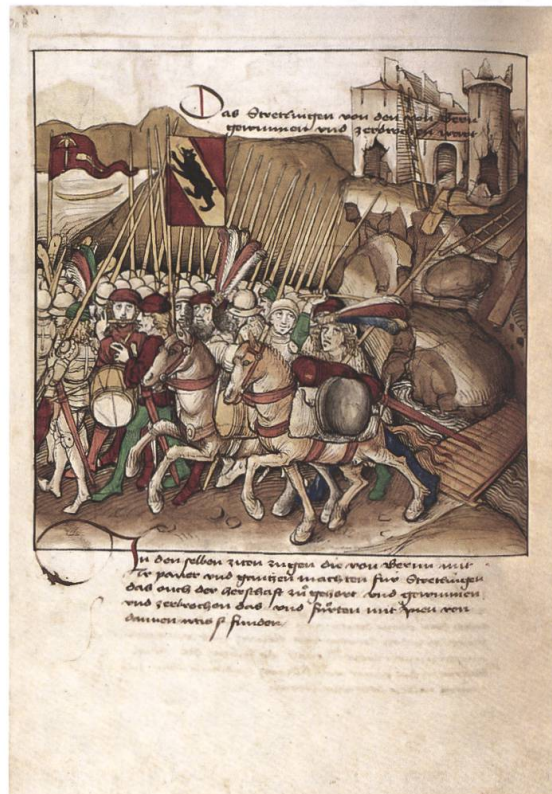 Das Stretlingen von den von Bern
gewunnen und zerbrochen wart
In den selben ziten zugen die von Bernn mit
Ir paner und gantzen machten für Stretlingen
das ouch der herschaft zů gehort und gewunnen
und zerbrochen das und fůrten mit Inen von
dannen was sÿ funden